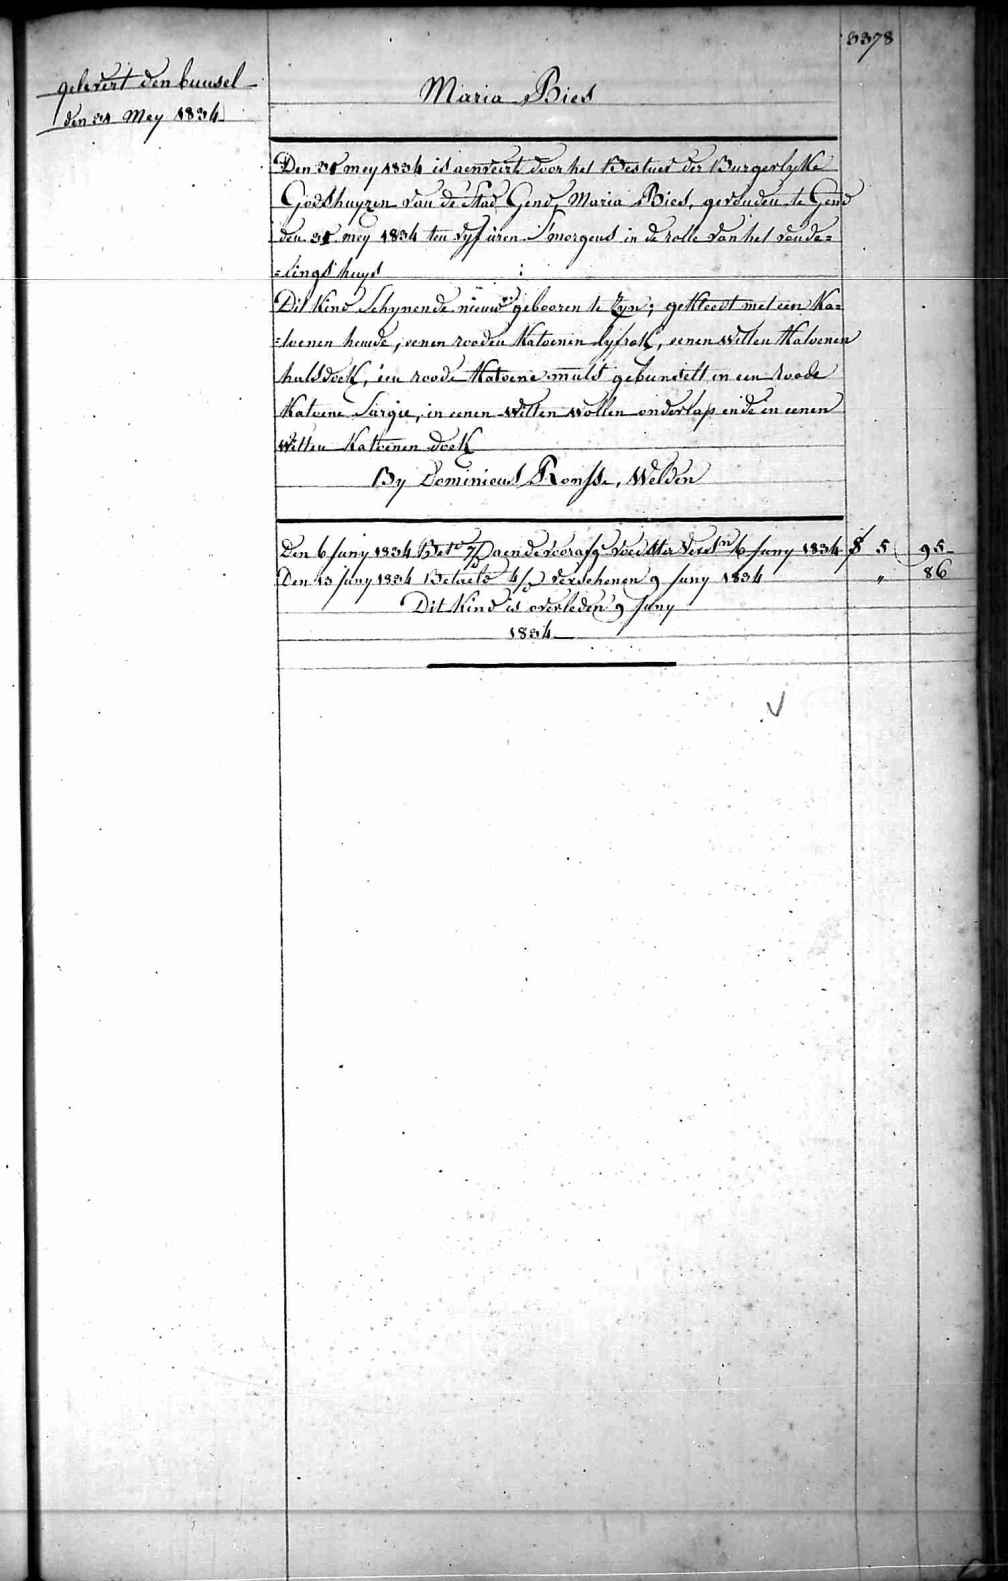 3378
gelevert den bunsel
den 31 Mey 1834
Maria Bies
Den 31 mey 1834 is aenveirt door het Bestuer der Burgerlyke
Godshuyzen van de Stad Gend, Maria Bies, gevonden te Gend
den 31 mey 1834 ten vyf uren S'morgens in de rolle van het vonde=
=lings huys
Dit Kind Schynende nieuw gebooren te Zyn; gekleed met een Ka=
=toenen hemde, eenen rooden Katoenen lyfrok, eenen witten Katoenen
halsdoek, een roode Katoene muts gebunselt in een roode
Katoene Sargie, in eenen witten wollen onderlap ende in eenen
witten Katoenen doek
By Dominicus Ronsse, Welden
Den 6 Juny 1834 aen de voedster 6 Juny 1834 5 95
Den 13 Juny 1834 Betaelt verschenen 9 Juny 1834 " 86
Dit Kind is overleden 9 Juny
1834